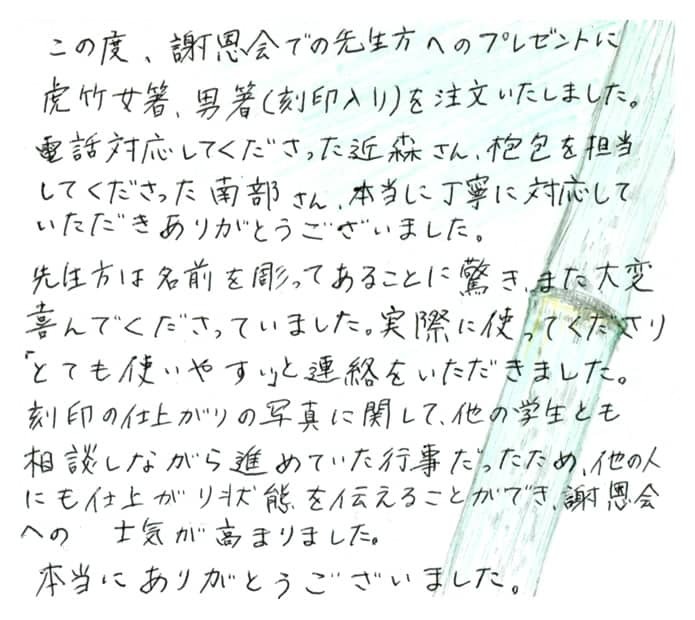 この度、謝恩会での先生方へのプレゼントに
虎竹女箸、男箸(刻印入り)を注文いたしました。
電話対応してくださった近森さん、梱包を担当
してくださった南部さん、本当に丁寧に対応して
いただきありがとうございました。
先生方は名前を彫ってあることに驚き、また大変
喜んでくださっていました。実際に使ってくださり
「とても使いやすい」と連絡をいただきました。
刻印の仕上がりの写真に関して、他の学生とも
相談しながら進めていた行事だったため、他の人
にも仕上がり状態を伝えることができ、謝恩会
への 士気が高まりました。
本当にありがとうございました。